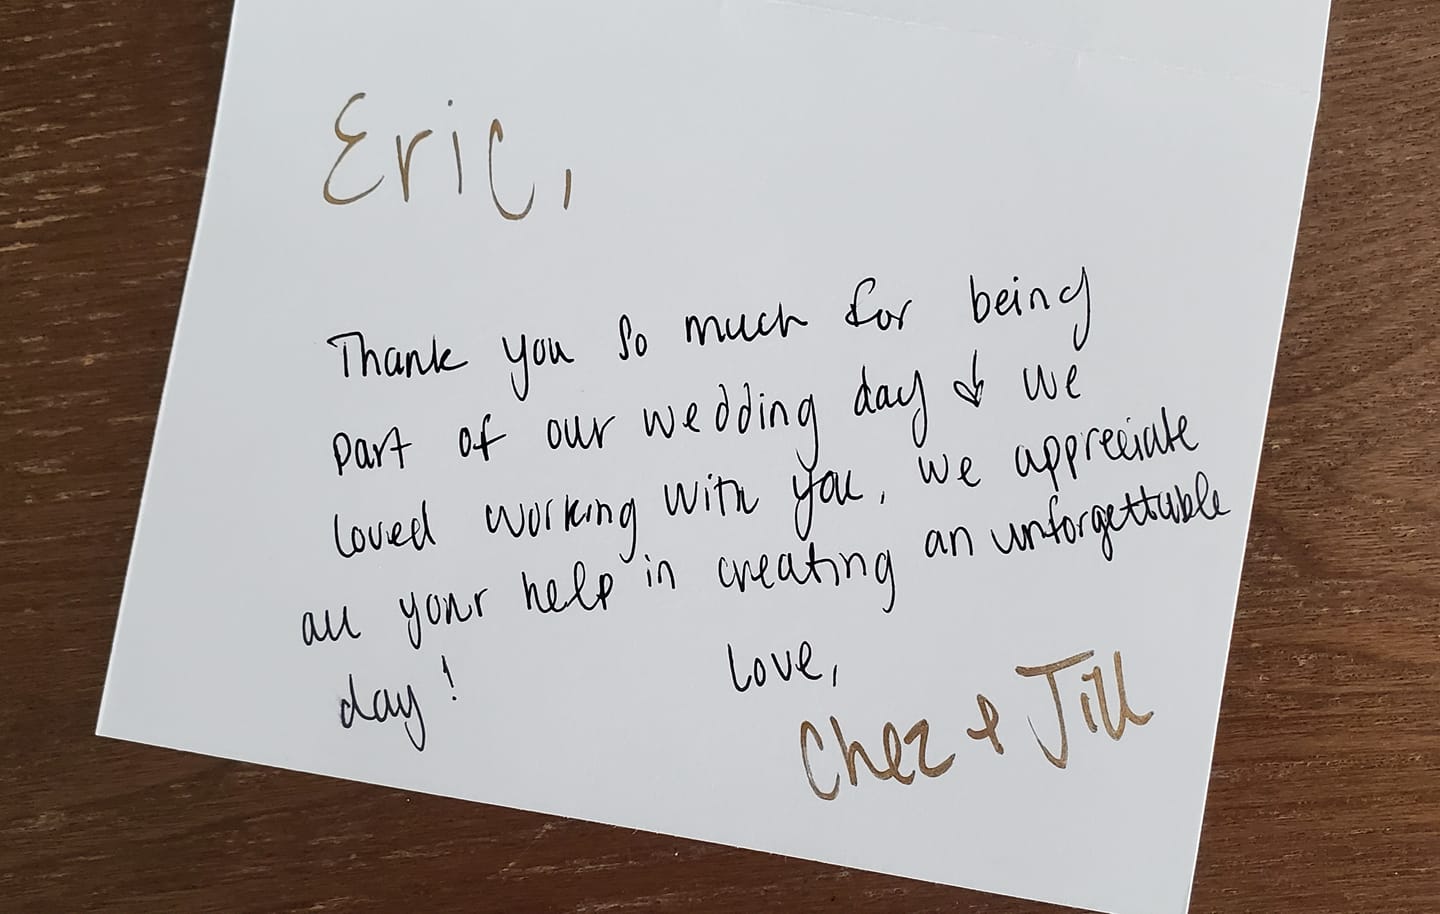 Eric,
Thank you so much for being
part of our wedding day & we
loved working with you, we appreciate
all your help in creating an unforgettable
day!
Love,
Chez & Jill